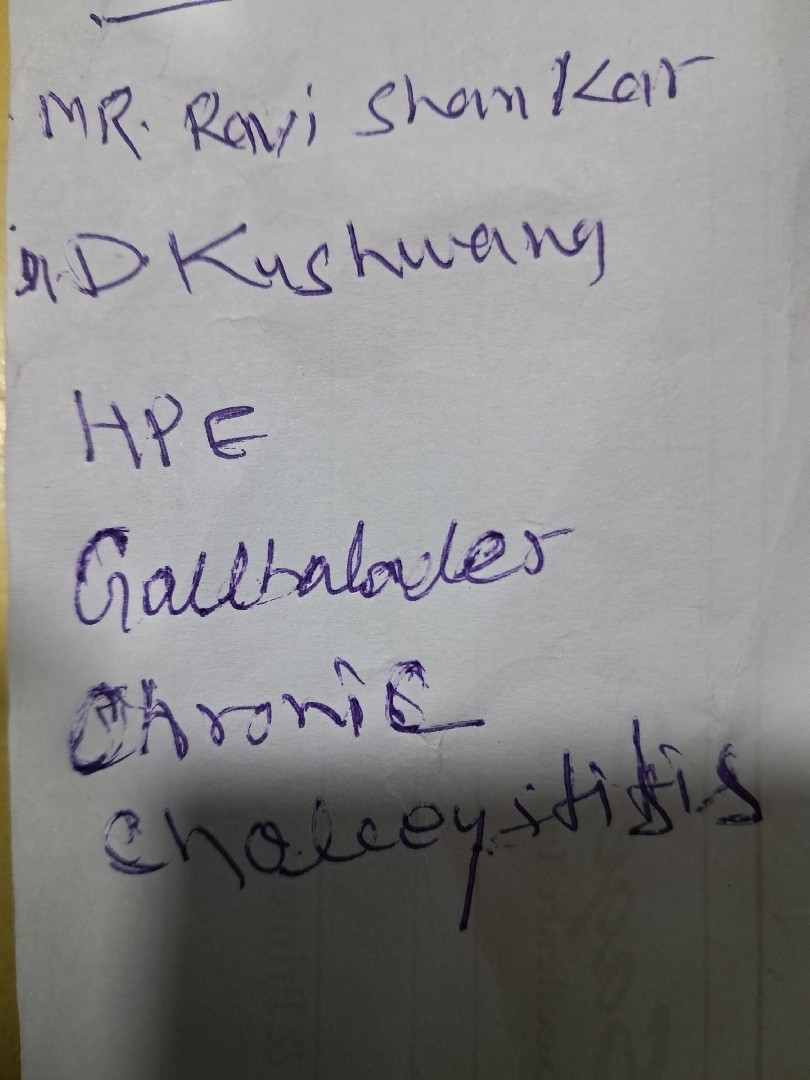 MR. Ravi Shankar
Dr. D Kushwang
HPE
Gallbalader
Chronic
Cholecystitis